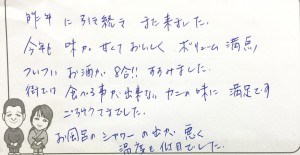 昨年 に引き続き また来ました。
今年も 味が 甘くて おいしく ボリューム 満点
ついつい お酒が 8合!! すすみました。
街では 食べる事が出来ない カニの味に 満足です
ごちそうさまでした。
お風呂の シャワーの出が 悪く
温度も 低目でした。